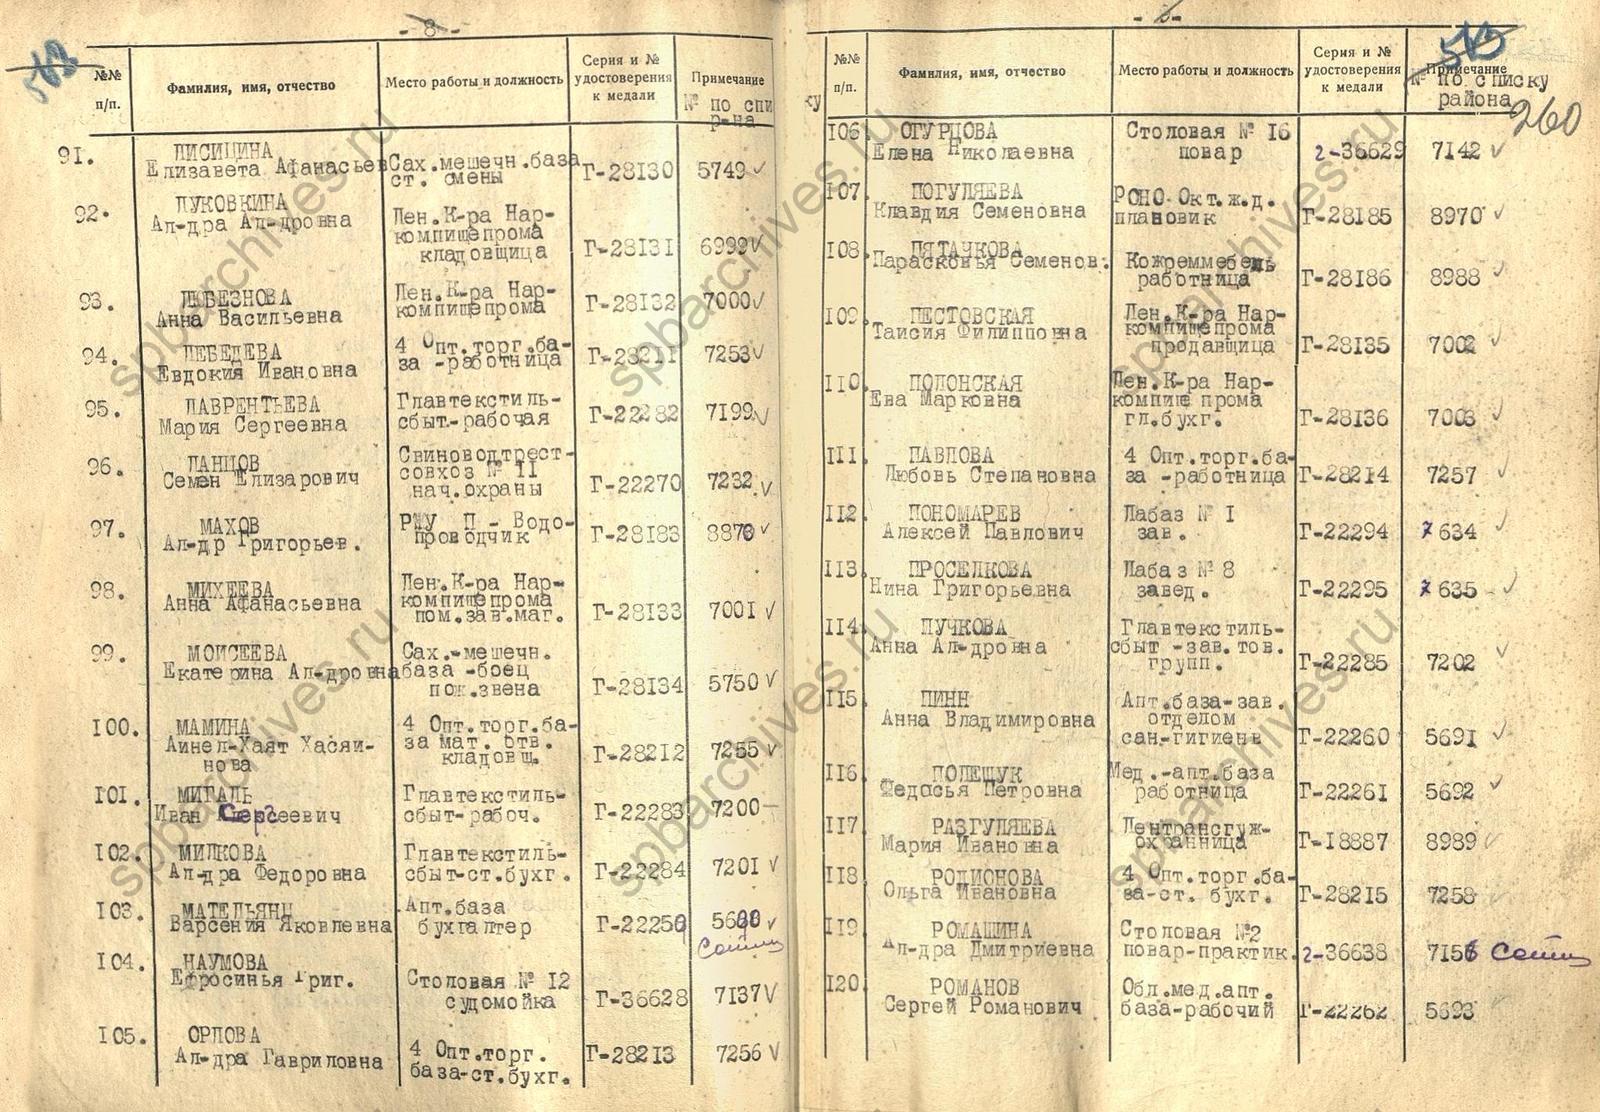 -8-
№№ п/п.
Фамилия, имя, отчество
Место работы и должность
Серия и № удостоверения к медали
Примечание
№ по спи р-на
91. ЛИСИЦИНА Сах.мешечн.база Г-28130 5749
Елизавета Афанасьев ст. смены
92. ЛУКОВКИНА
Ал-дра Ал-дровна Лен.К-ра Нар-
компищепрома
кладовщица Г-28131 6999
93. ЛЮБЕЗНОВА Лен.К-ра Нар-
Анна Васильевна компищепрома Г-28132 7000
94. ЛЕБЕДЕВА 4 Опт.торг.ба-
Евдокия Ивановна за -работница Г-28211 7253
95. ЛАВРЕНТЬЕВА Главтекстиль-
Мария Сергеевна сбыт-рабочая Г-22282 7199
96. ЛАНЦОВ Свиноводтрест-
Семен Елизарович совхоз № II
нач.охраны Г-22270 7232
97. МАХОВ РЖУ П - Водо-
Ал-др Григорьев. проводчик Г-28183 8870
98. МИХЕЕВА Лен.К-ра Нар-
Анна Афанасьевна компищепрома
пом.зав.маг. Г-28133 7001
99. МОИСЕЕВА Сах.-мешечн.
Екатерина Ал-дровна база -боец
пож.звена Г-28134 5750
100. МАМИНА 4 Опт.торг.ба-
Аинел-Хаят Хасяи- за мат. отв.
нова кладовщ. Г-28212 7255
101. МИГАЛЬ Главтекстиль-
Иван Сергеевич сбыт-рабоч. Г-22283 7200
102. МИЛКОВА Главтекстиль-
Ал-дра Федоровна сбыт-ст.бухг. Г-22284 7201
103. МАТЕЛЬЯНЦ Апт.база
Варсения Яковлевна бухгалтер
104. НАУМОВА
Ефросинья Григ. Столовая № 12
судомойка Г-36628 7137
105. ОРЛОВА
Ал-дра Гавриловна 4 Опт.торг. Г-28213 7256
база-ст.бухг.
№№ п/п.
Фамилия, имя, отчество
Место работы и должность
Серия и № удостоверения к медали
Примечание
№ по списку
района
260
106. ОГУРЦОВА Столовая № 16
Елена Николаевна повар г-36629 7142
107. ПОГУЛЯЕВА РОНО Окт.ж.д.
Клавдия Семеновна плановик Г-28185 8970
108. ПЯТАЧКОВА
Парасковья Семенов. Кожреммебель
работница Г-28186 8988
109. ПЕСТОВСКАЯ Лен.К-ра Нар-
Таисия Филипповна компищепрома
продавщица Г-28135 7002
110. ПОЛОНСКАЯ Лен.К-ра Нар-
Ева Марковна компище прома
гл.бухг. Г-28136 7003
111. ПАВЛОВА 4 Опт.торг.ба-
Любовь Степановна за -работница Г-28214 7257
112. ПОНОМАРЕВ Лабаз № I
Алексей Павлович зав. Г-22294 7634
113. ПРОСЕЛКОВА Лабаз № 8
Нина Григорьевна завед. Г-22295 7635
114. ПУЧКОВА Главтекстиль-
Анна Ал-дровна сбыт -зав.тов.
групп. Г-22285 7202
115. ПИНН Апт.база-зав.
Анна Владимировна отделом
сан-гигиены Г-22260 5691
116. ПОЛЕЩУК Мед.-апт.база
Федосья Петровна работница Г-22261 5692
117. РАЗГУЛЯЕВА Лентрансгуж-
Мария Ивановна охранница Г-18887 8989
118. РОДИОНОВА 4 Опт.торг.ба-
Ольга Ивановна за-ст. бухг. Г-28215 7258
119. РОМАШИНА Столовая №2
Ал-дра Дмитриевна повар-практик. г-36638 7156
120. РОМАНОВ Обл.мед.апт.
Сергей Романович база-рабочий Г-22262 5693
spbarchives.ru